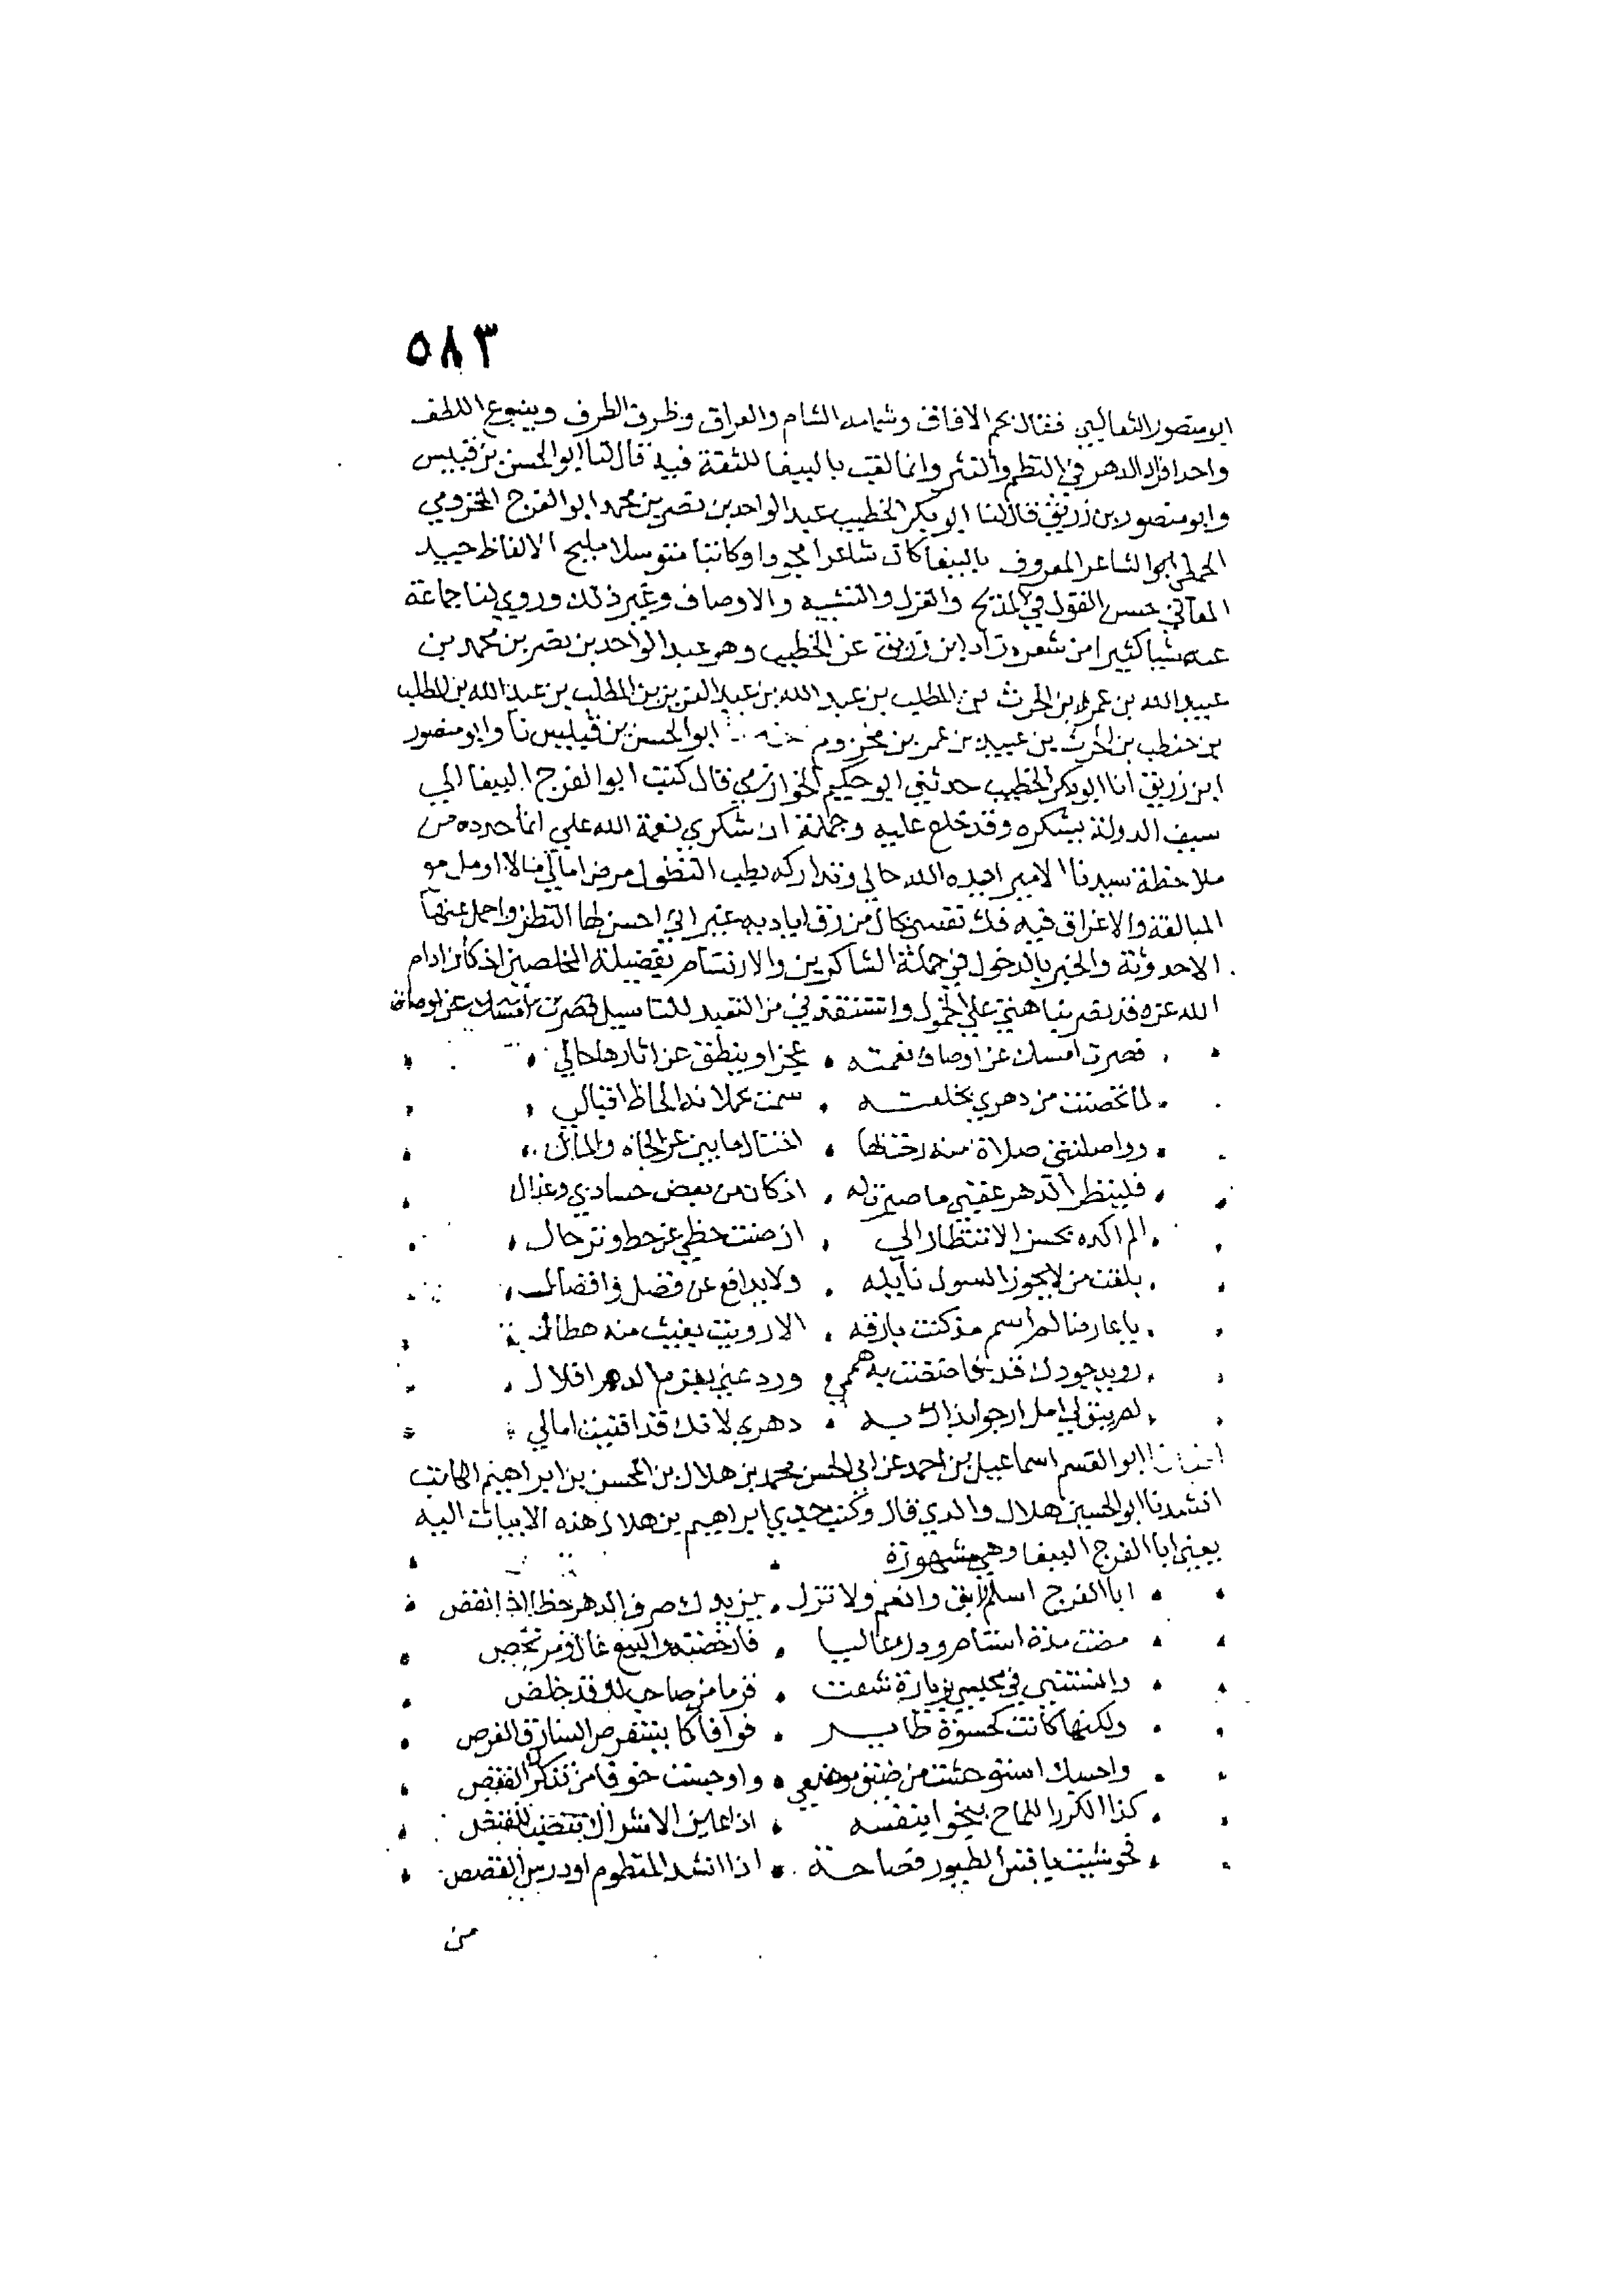 ٥٨٣
ابو منصور الثعالبي فقال نجم الافاق وشمامه الشام والعراق وظرف الظرف وينبوع اللطف
واحد افراد الدهر في النظم والنثر وانما لقب بالببغا للثغة فيه قال لنا ابو الحسن بن قبيس
وابو منصور بن زريق قال لنا ابو بكر الخطيب عبد الواحد بن نصر بن محمد ابو الفرج المخزومي
الحنطبي الشاعر المعروف بالببغا كان شاعرا مجودا وكاتبا مترسلا مليح الالفاظ جيد
المعاني حسن القول في المديح والغزل والتشبيه والاوصاف وغير ذلك وروي لنا جماعة
عنه شيا كثيرا من شعره زاد ابن زريق عن الخطيب وهو عبد الواحد بن نصر بن محمد بن
عبيد الله بن عمر بن الحرث بن المطلب بن عبد الله بن عبد العزيز بن المطلب بن عبد الله بن المطلب
بن حنطب بن الحرث بن عبيد بن عمر بن مخزوم ابو الحسن بن قبيس نا وابو منصور
ابن زريق انا ابو بكر الخطيب حدثني ابو حكيم الخوارزمي قال كتب ابو الفرج الببغا الي
سيف الدولة يشكره وقد خلع عليه وجملة ان شكري نعمة الله علي انما جدده من
ملاحظة سيدنا الامير ايده الله حالي وتداركه بطب التفضل مرض امالي مالا اومل مو
المبالغة والاغراق فيه فك نفسي بحال من رق اياديه غير اني احسن لها النظر واجمل عنها
الاحدوثة والخبر بالدخول في جملة الشاكرين والارتسام بفضيلة المخلصين اذ كان ادام
الله عزه قد نصر نباهتي علي الخمول واستنقذني من التعبد للتاميل فصرت امسك عن اوصاف
فصرت امسك عن اوصاف نعمته عجزا وينطق عن اثارها حالي
لما تحصنت من دهري بخلعته سمت بحملانه الحاظ اقبالي
وواصلتني صلاة منه رحت بها اختال ما بين عز الجاه والمال
فلينظر الدهر عقبي ما صبرت له اذ كان من بعض حسادي وعذالي
الم اكده بحسن الانتظار الي ان صنت حظي عن حط وترحال
بلغت من لا يجوز السول نايله ولا يدافع عن فضل وافضال
يا عارضا لم اشم مذ كنت بارقه الا رويت بغيث منه هطال
رويد جودك قد ضاقت به هممي ورد عني برغم الدهر اقلالي
لم يبق لي امل ارجو نداك به دهري لانك قد افنيت امالي
ابو القسم اسماعيل بن احمد عن ابي الحسن محمد بن هلال بن المحسن بن ابراهيم الكاتب
انشدنا ابو الحسين هلال والدي قال وكتب جدي ابراهيم بن هلال هذه الابيات اليه
يعني ابا الفرج الببغا وهي مشهورة
ابا الفرج اسلم وابق وانعم ولا تزل يزيدك صرف الدهر حظا اذا نقص
مضت مدة استام ودك غاليا فارخصته والبيع غال ومرتخص
وانستني في محبسي بزيارة شفت قرما من صاحب لك قد خلص
ولكنها كانت كحسوة طاير فواقا كما يستفرص السارق الفرص
واحسبك استوحشت من ضيق موضعي واوجست خوفا من تذكرك القفص
كذا الكرز اللماح ينجوا بنفسه اذا عاين الاشراك تنصب للقنص
فحوشيت يا قس الطيور فصاحة اذا انشد المنظوم او درس القصص
من